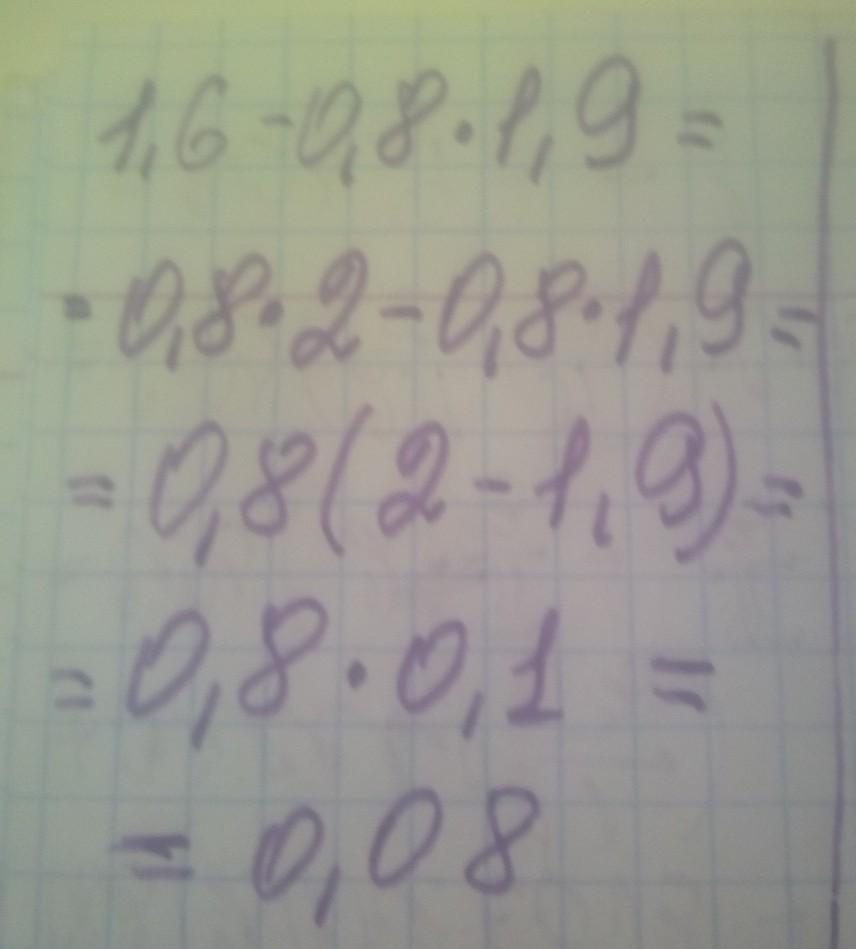 1,6-0,8·1,9=
·0,8·2-0,8·1,9=
=0,8(2-1,9)=
=0,8·0,1=
=0,08